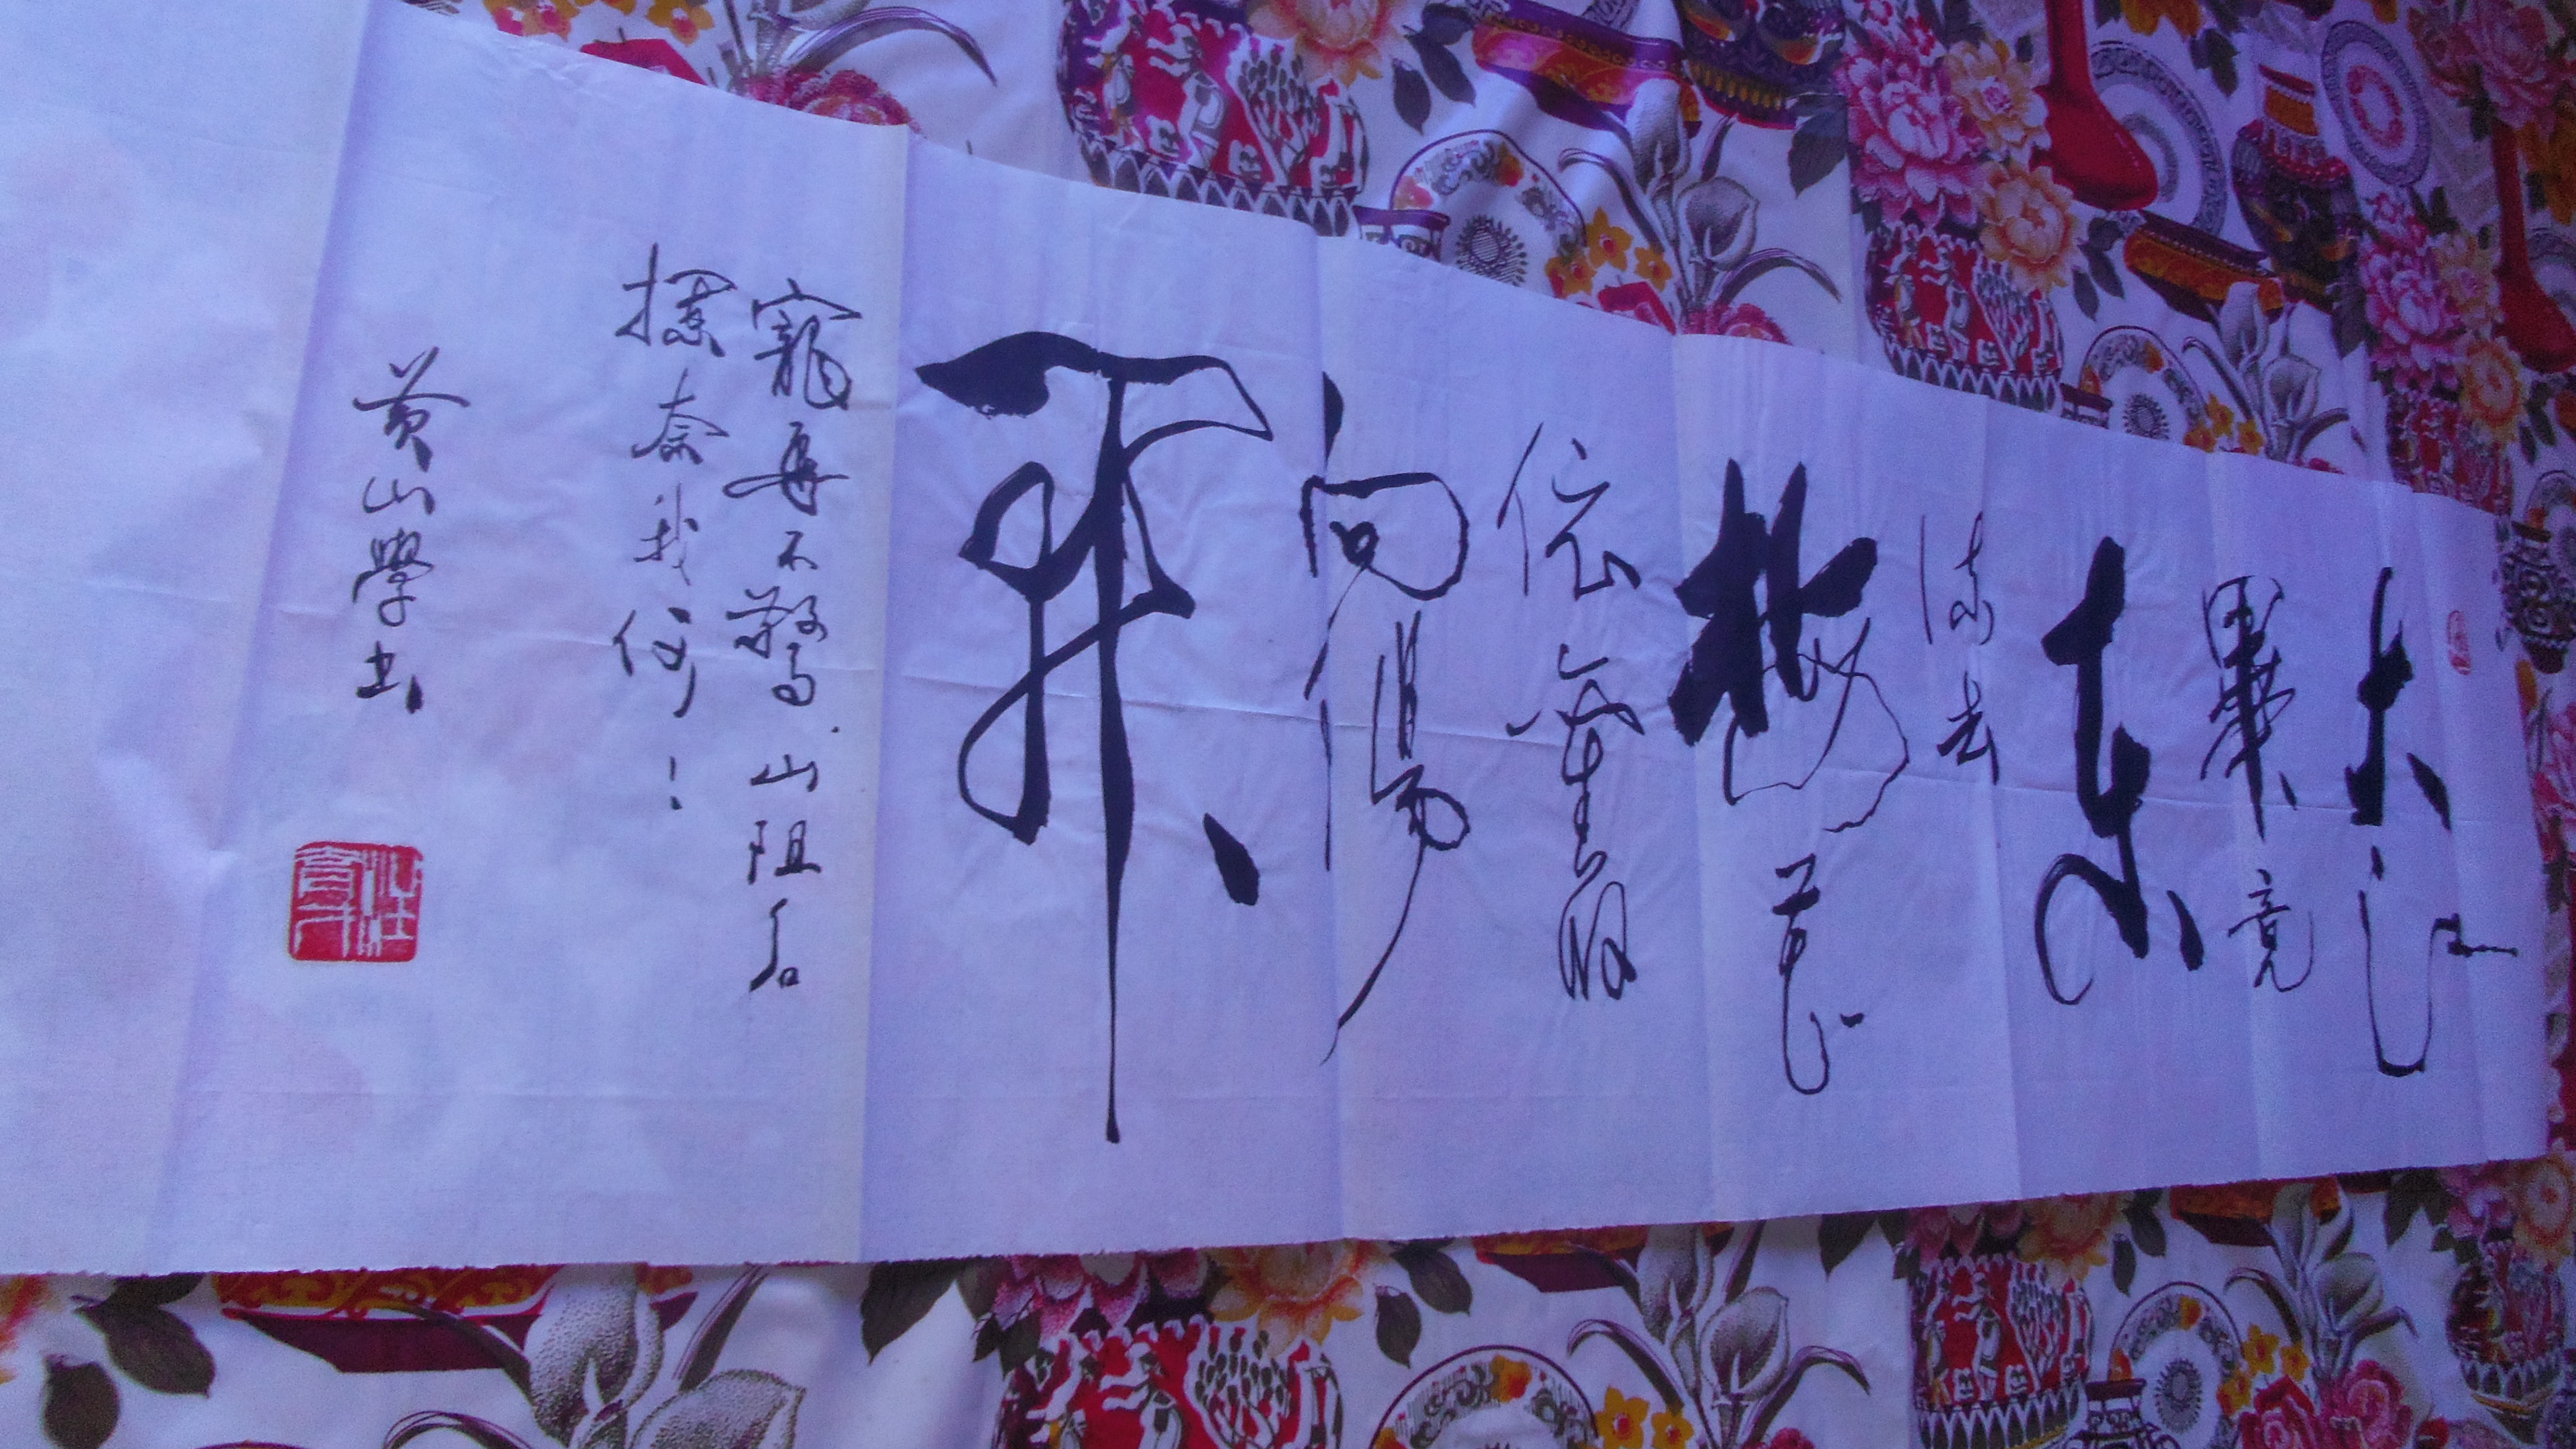 大江
畢竟
東
流去
梅花
依
向陽
開
寵辱不驚.山阻石
奈我何!
黃山學書